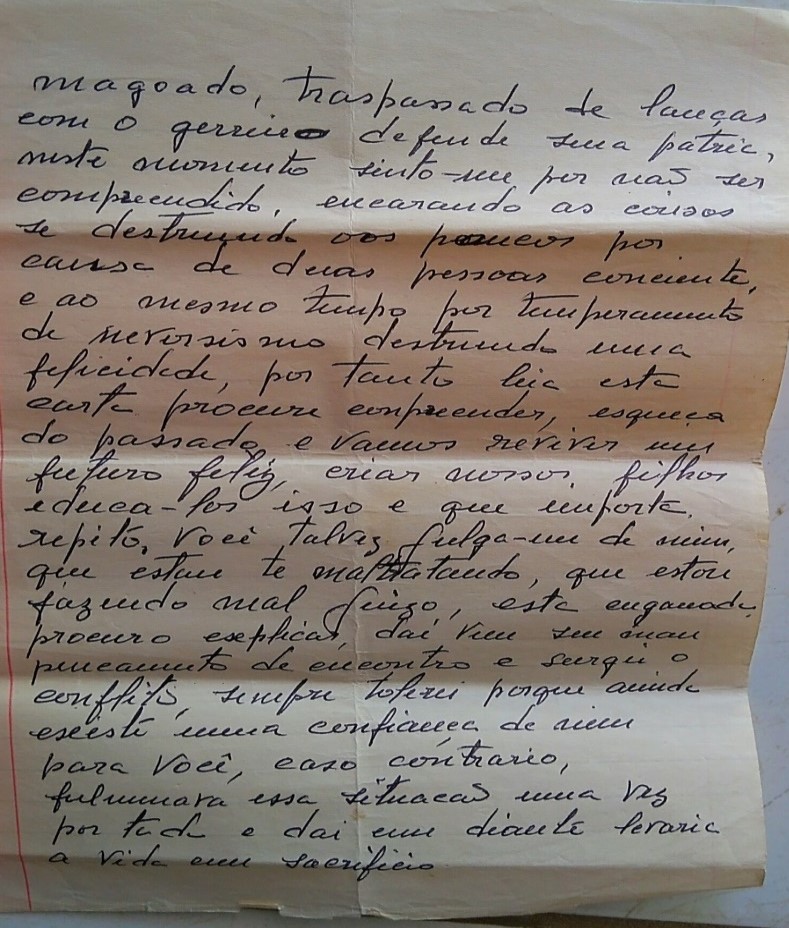 magoado, traspassado de lanças
com o gerreiro defende sua patria,
neste momento sinto-me por não ser
compreendido, encarando as coisas
se destruindo aos poucos por
causa de duas pessoas conciente,
e ao mesmo tempo por temperamento
de nervosismo destruindo uma
felicidade, por tanto leia esta
carta procure conpreender, esqueça
do passado e vamos reviver um
futuro feliz, criar nossos filhos
educa-los isso e que importa,
repito, Você talvez julga-me de mim,
que estou te maltratando, que estou
fazendo mal juizo, esta enganada,
procuro esplicar, dai vem seu mau
pencamento de encontro e surgi o
conflito, sempre tolerei porque ainda
existe uma confiança de mim
para Você, caso contrario,
fulminava essa situacão uma vez
por tada e dai em diante levaria
a vida em sacrificio